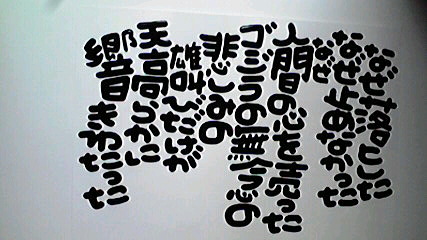 なぜ落した
なぜ止めなかった
なぜ
人間の心を売った
ゴジラの無念の
悲しみの
雄叫びだけが
天高らかに
響きわたった